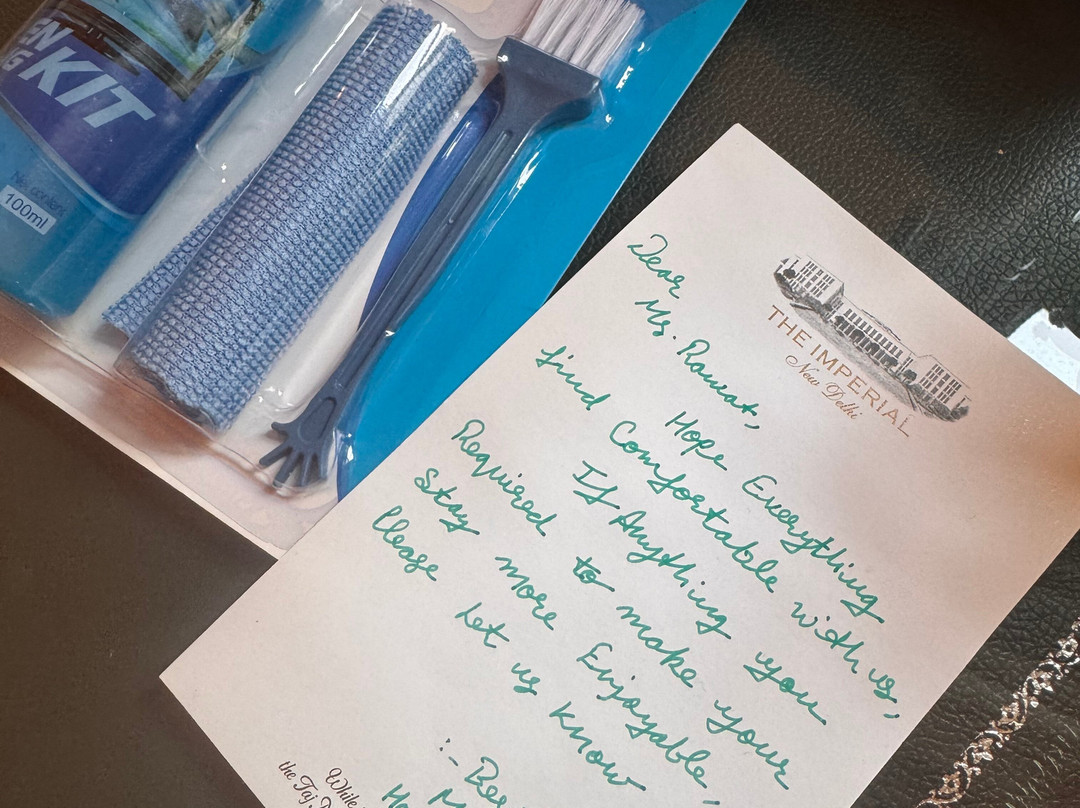 KIT
Net content
100ml
THE IMPERIAL
New Delhi
Dear
Mr. Rawat,
Hope Everything
find Comfortable with us,
If Anything you
Required to make your
Stay more Enjoyable,
Please Let us know
While
the Taj